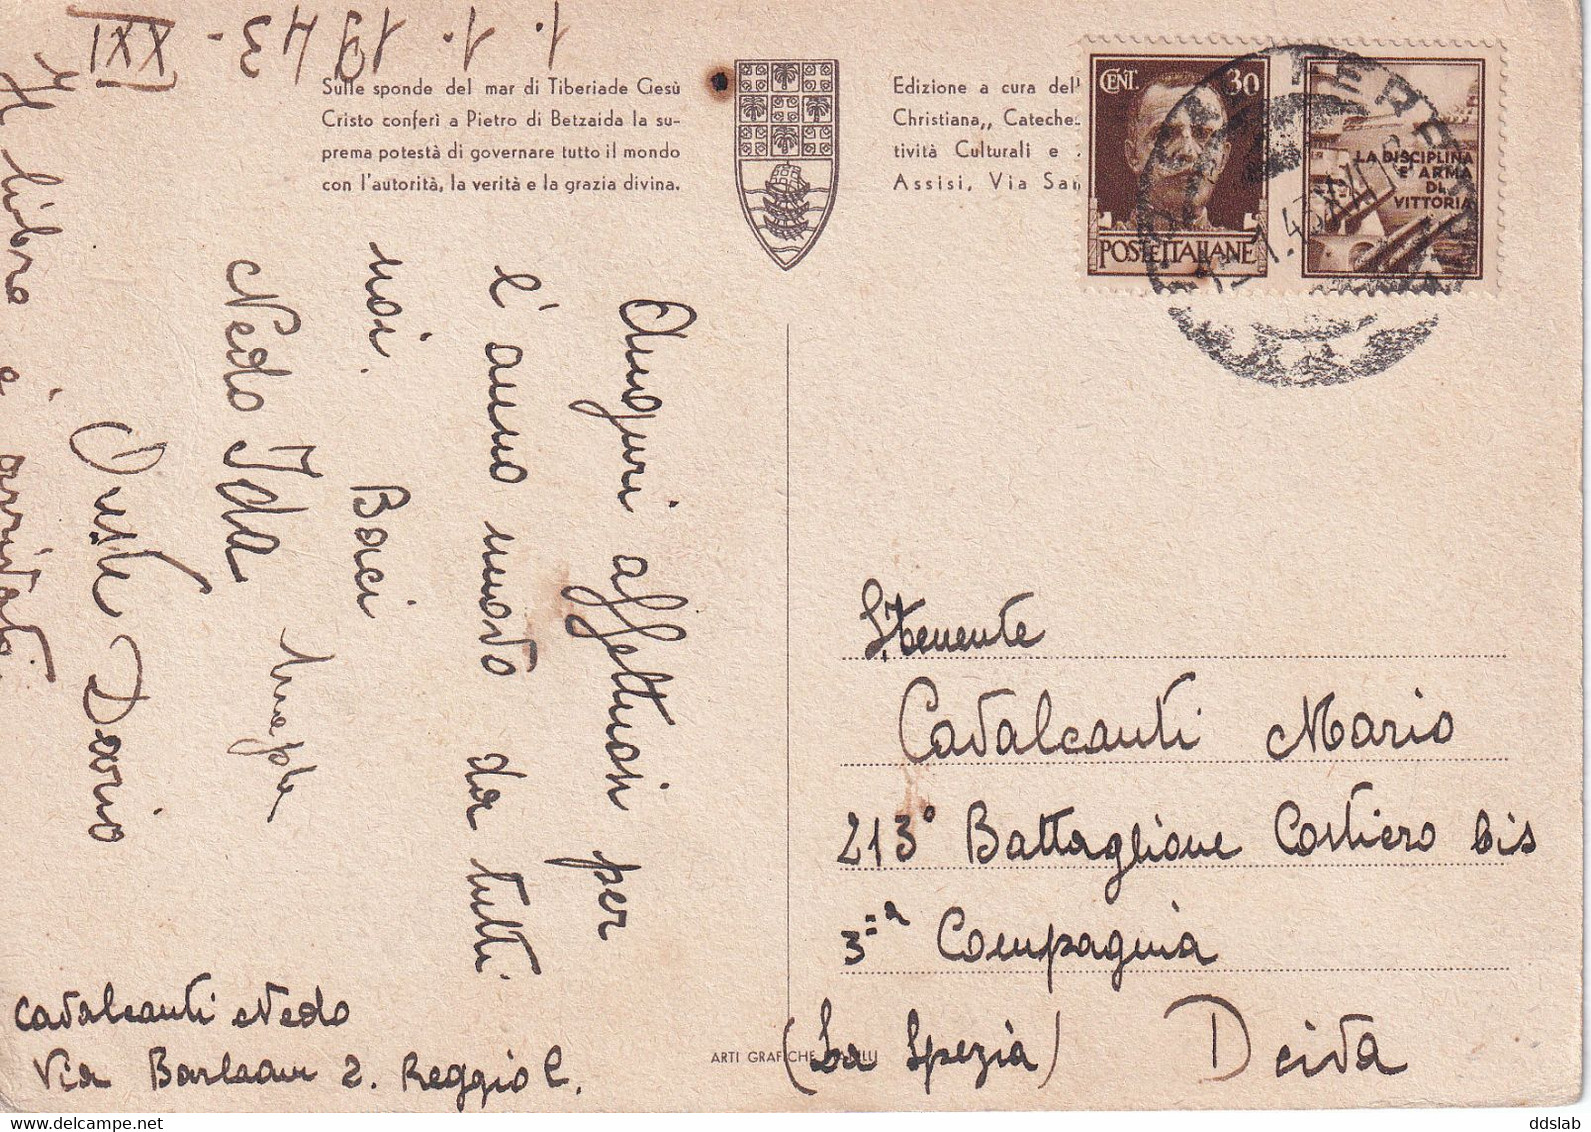 1. 1. 1943 - XXI
Sulle sponde del mar di Tiberiade Gesù
Cristo conferì a Pietro di Betzaida la su-
prema potestà di governare tutto il mondo
con l'autorità, la verità e la grazia divina.
Edizione a cura dell'
Christiana,, Cateche-
tività Culturali e
Assisi, Via San
CENT. 30
POSTE ITALIANE
LA DISCIPLINA
E' ARMA
DI
VITTORIA
Auguri affettuosi per
l'anno nuovo da tutti
noi. Baci
Nedo Ida
Dario
Il libro è arrivato.
S. Tenente
Cavalcanti Mario
213° Battaglione Costiero bis
3ª Compagnia
(La Spezia) Deiva
Cavalcanti Nedo
Via 2. Reggio E.
ARTI GRAFICHE
ddslab
www.delcampe.net